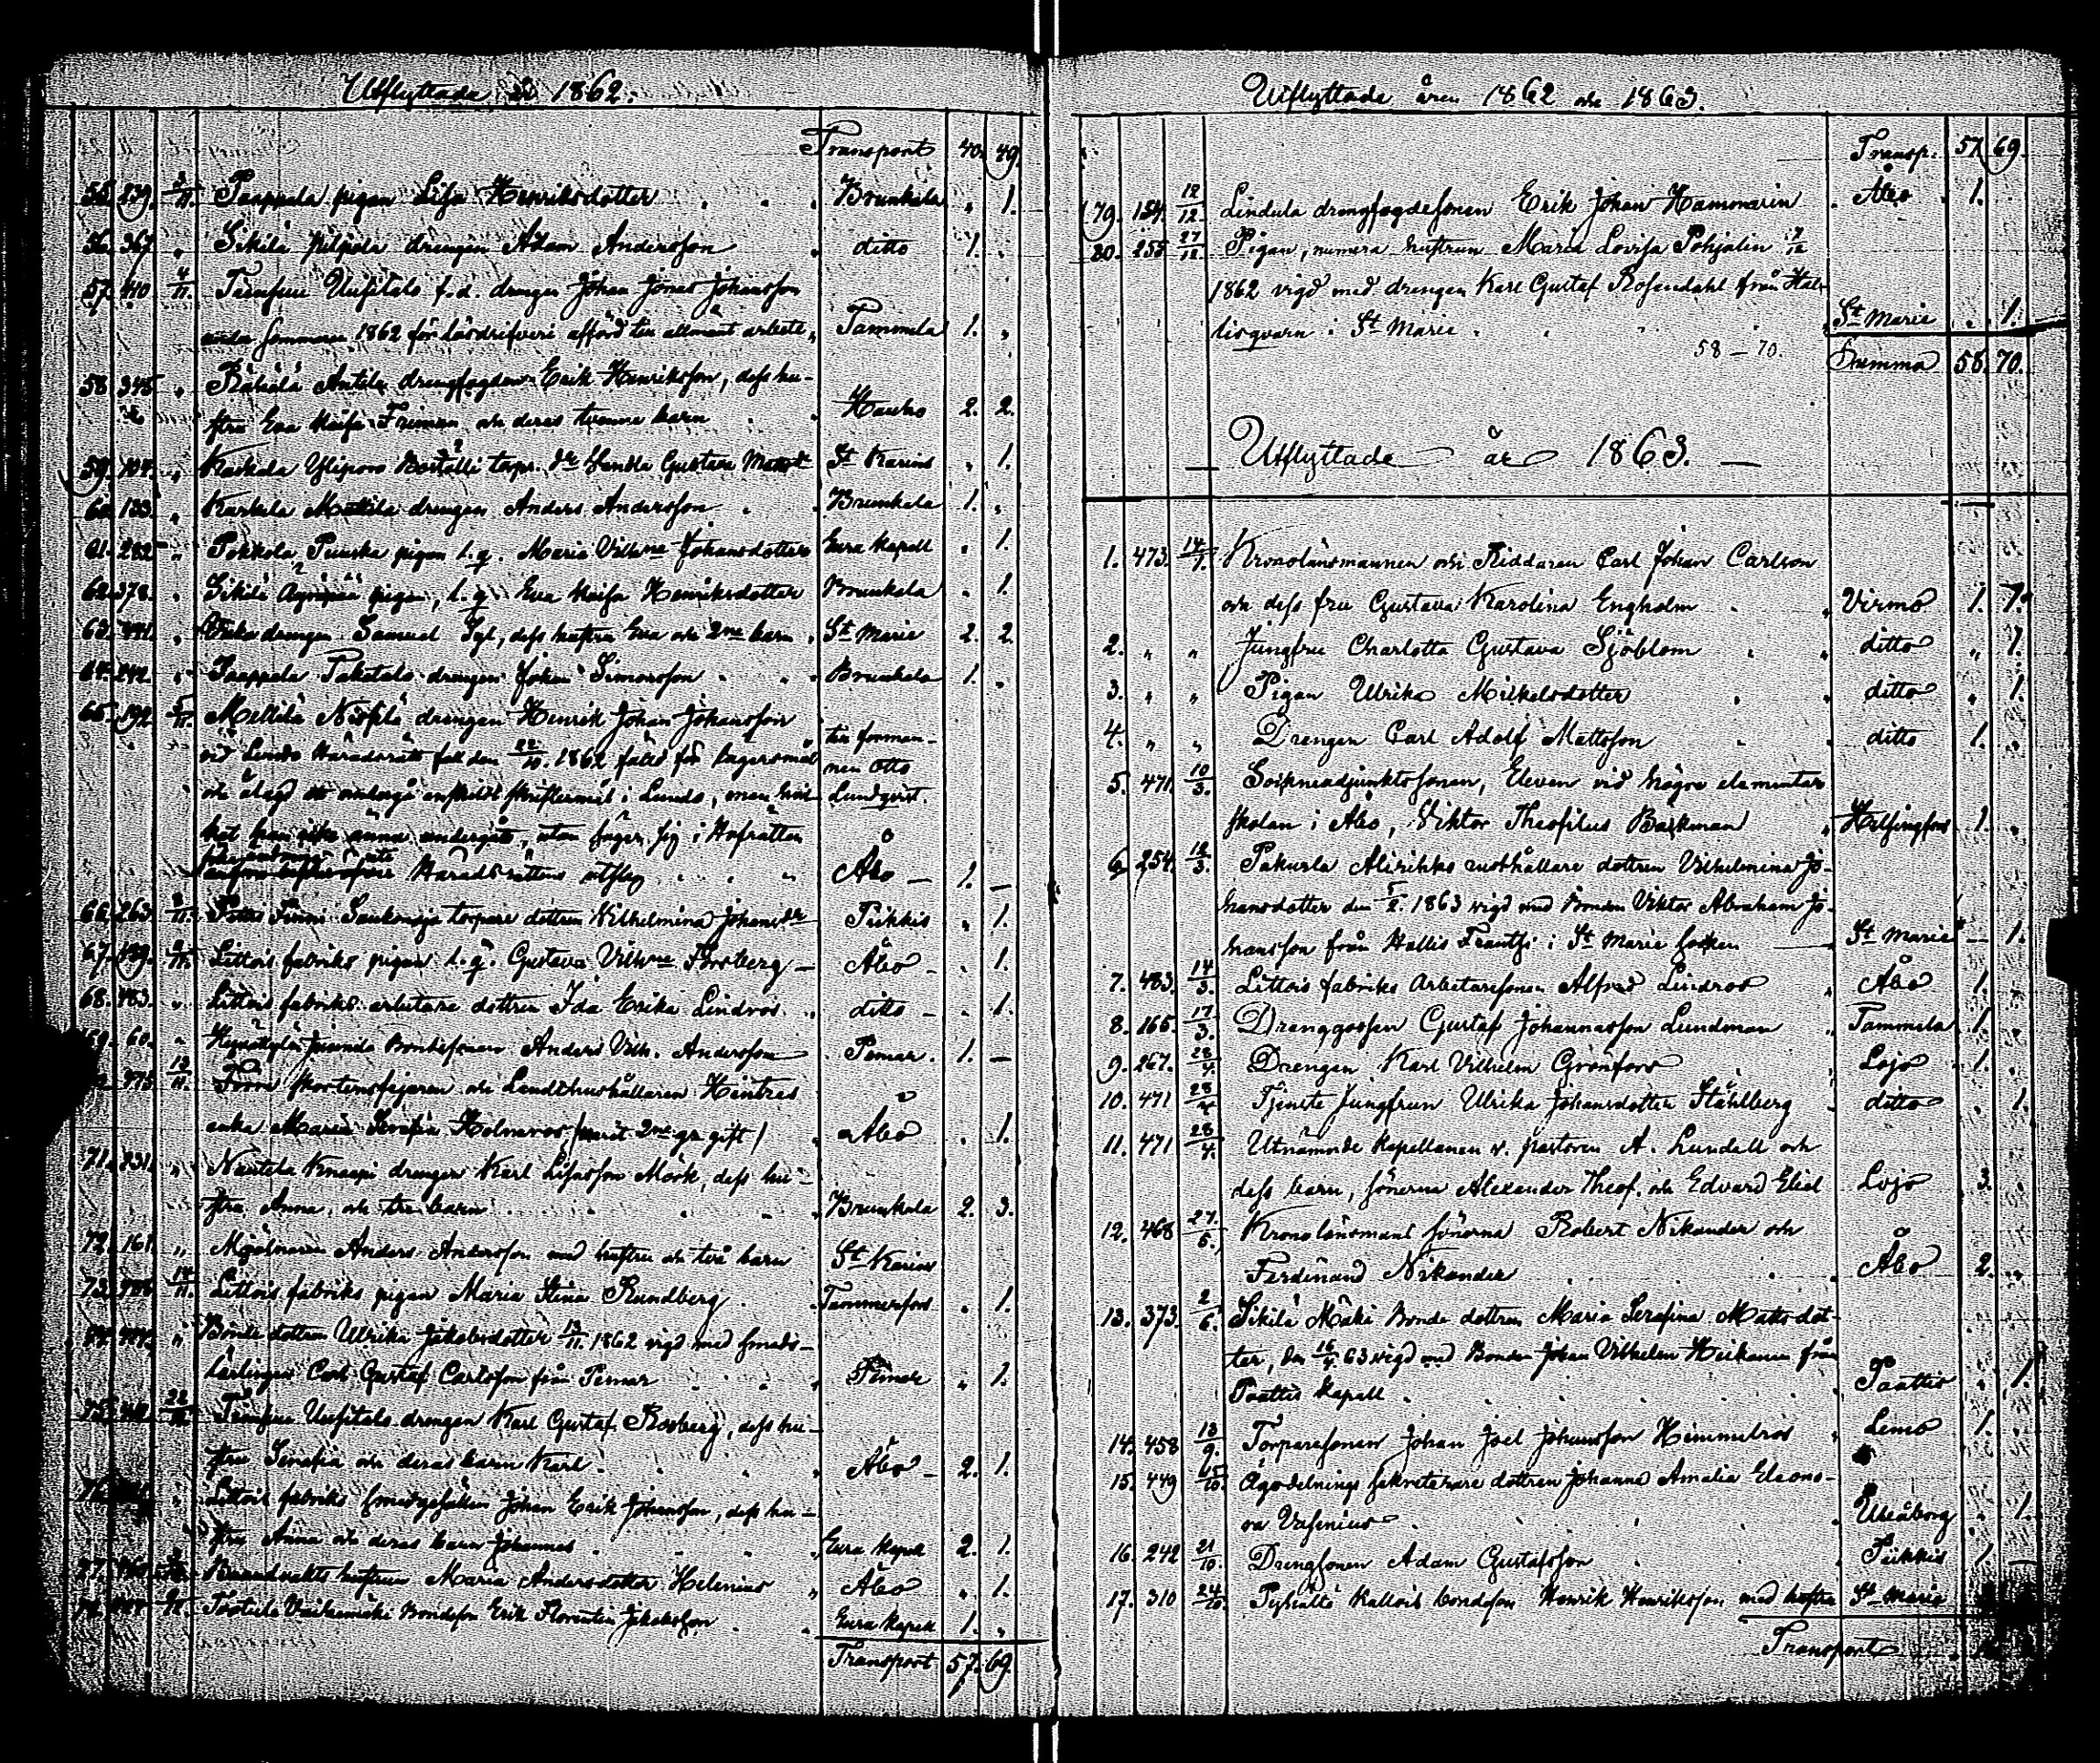 Utflyttade år 1862.
Transport 40. 49.
55. 239. 3/11. Paappala pigan Lisa Henriksdotter Brunkala „ 1.
56. 367. „ Sikilä pilpola drengen Adam Andersson ditto 1. „
57. 410 4/11. f. d. drengen Johan Jonas Johansson
1862 för lösdrifveri afförd till allmänt arbete Tammela 1. „
58. 345 „ Antila drengfogden Erik Henriksson, dess hu-
stru Eva Maisa Friman och deras tvenne barn Hauho 2. 2.
59. 104. „ torp. dr Gustava St Karins „ 1.
60. 133. „ Karkela Mattila drengen Anders Andersson Brunkala 1. „
61. 282 „ Pokkola pigan l. q. Maria Vilhna Johansdotter Eura Kapell „ 1.
62. 378. „ Sikilä pigan, l. q. Eva Maisa Henriksdotter Brunkala „ 1.
63. „ drengen Samuel dess hustru Eva och 2ne barn St Marie 2. 2.
64. 242. „ Paappala drengen Johan Simonsson Brunkala 1. „
65. 192. 5/11. Mellilä drengen Henrik Johan Johansson
vid Lundo Häradsrätt den 22/10. 1862 fäld för lägersmål till forman-
och ålagd att undergå enskildt skriftermål i Lundo, men hvil- nen Otto
ket han icke ännu undergått, utan säger sig i Hofrätten Lundqvist.
Häradsrättens utslag Åbo — 1. —
66. 263. 11. torpare dottren Wilhelmina Johansdr Piikkis „ 1.
67. 11. Littois fabriks pigan l. q. Gustava Vilhna Forsberg — Åbo — „ 1.
68. 483. „ Littois fabriks arbetare dottren Ida Erika Lindros ditto — „ 1.
69. 60. „ Bondesonen Anders Vilh. Andersson Pemar. 1. —
13/11. Förra skorstensfejaren och Landthushållaren
enka Maria Serafia Holmroos /varit 2ne gr gift/ Åbo „ 1.
71. 231. „ Nautela Knaapi drengen Karl Mörk, dess hu-
stru Anna och tre barn Brunkala 2. 3.
72. 161. „ Mjölnaren Anders Andersson med hustru och två barn St Karins
73. 14/11. Littois fabriks pigan Maria Stina Rundberg Tammerfors „ 1.
„ Bonde dottren Ulrika Jakobsdotter 13/11. 1862 vigd med smeds-
lärlingen Carl Gustaf Carlsson från Pemar Pemar „ 1.
75. 22/11 drengen Karl Gustaf Rosberg, dess hu-
stru Serafia och deras barn Karl Åbo — 2. 1.
76. „ Littois fabriks smedgesällen Johan Erik Johansson, dess hu-
stru Anna och deras barn Johannes Eura Kapell 2. 1.
77. hustrun Maria Andersdotter Helenius Åbo „ 1.
Bondeson Erik Florentin Jakobsson Eura Kapell 1. „
Transport 57. 69.
Utflyttade åren 1862 och 1863.
Transp. 57. 69.
79. 154. 12/12. Lindula drengfogdesonen Erik Johan Hammarin Åbo 1.
80. 255 27/12. Pigan, numera hustrun Maria Lovisa Pohjalin 7/12
1862 vigd med drengen Karl Gustaf Rosendahl från Hal-
lisqvarn i St Marie St Marie „ 1.
58 — 70. Summa 58. 70.
Utflyttade år 1863. —
1. 473. 14/1. Kronolänsmannen och Riddaren Carl Johan Carlson
och dess fru Gustava Karolina Engholm Virmo 1. 1.
2. „ „ Jungfru Charlotta Gustava Sjöblom ditto „ 1.
3. „ „ Pigan Ulrika Mickelsdotter ditto „ 1.
4. „ „ Drengen Carl Adolf Mattsson ditto 1. „
5. 471. 10/3. Sockneadjunktssonen, Eleven vid högre elementar
skolan i Åbo, Viktor Theofilus Barkman Helsingfors 1. „
6 254. 12/3. Pakurla Alirikko rusthållare dottren Vilhelmina Jo-
hansdotter den 5/2. 1863 vigd med Bonden Viktor Abraham Jo-
hansson från Hallis Frantsi i St Marie socken St Marie — 1.
7. 483. 14/3. Littois fabriks Arbetaresonen Alfred Lindroos Åbo 1. „
8. 165. 17/3. Dränggossen Gustaf Johannesson Lundman Tammela 1. „
9. 267. 28/4. Drengen Karl Vilhelm Grönfors Lojo 1. „
10. 471 28/4 Tjenste Jungfrun Ulrika Johansdotter Ståhlberg ditto „ 1.
11. 471 28/4. Utnämnde Kapellanen v. pastoren A. Lundell och
dess barn, sönerna Alexander Theof. och Edvard Eliel Lojo 3.
12. 468 27./5. Kronolänsmans sönerna Robert Nikander och
Ferdinand Nikander Åbo 2. „
13. 373. 2/6. Sikilä Mäki Bonde dottren Maria Serafina Mattsdot-
ter, den 16/4 63 vigd med Bonden Johan Vilhelm Heikkinen från
Paattis Kapell Paattis „ 1.
14. 458 13/9. Torparesonen Johan Joel Johansson Himmelroos Lemo 1. „
15. 449 15/10. Ägodelnings sekreterare dottren Johanna Amalia Eleono-
ra Vasenius Uleåborg „ 1.
16. 242 21/10. Drengsonen Adam Gustafsson Piikkis 1. —
17. 310 24/10. Pyhältö Kallois bondeson Henrik Henriksson med hustru St Marie
Transport